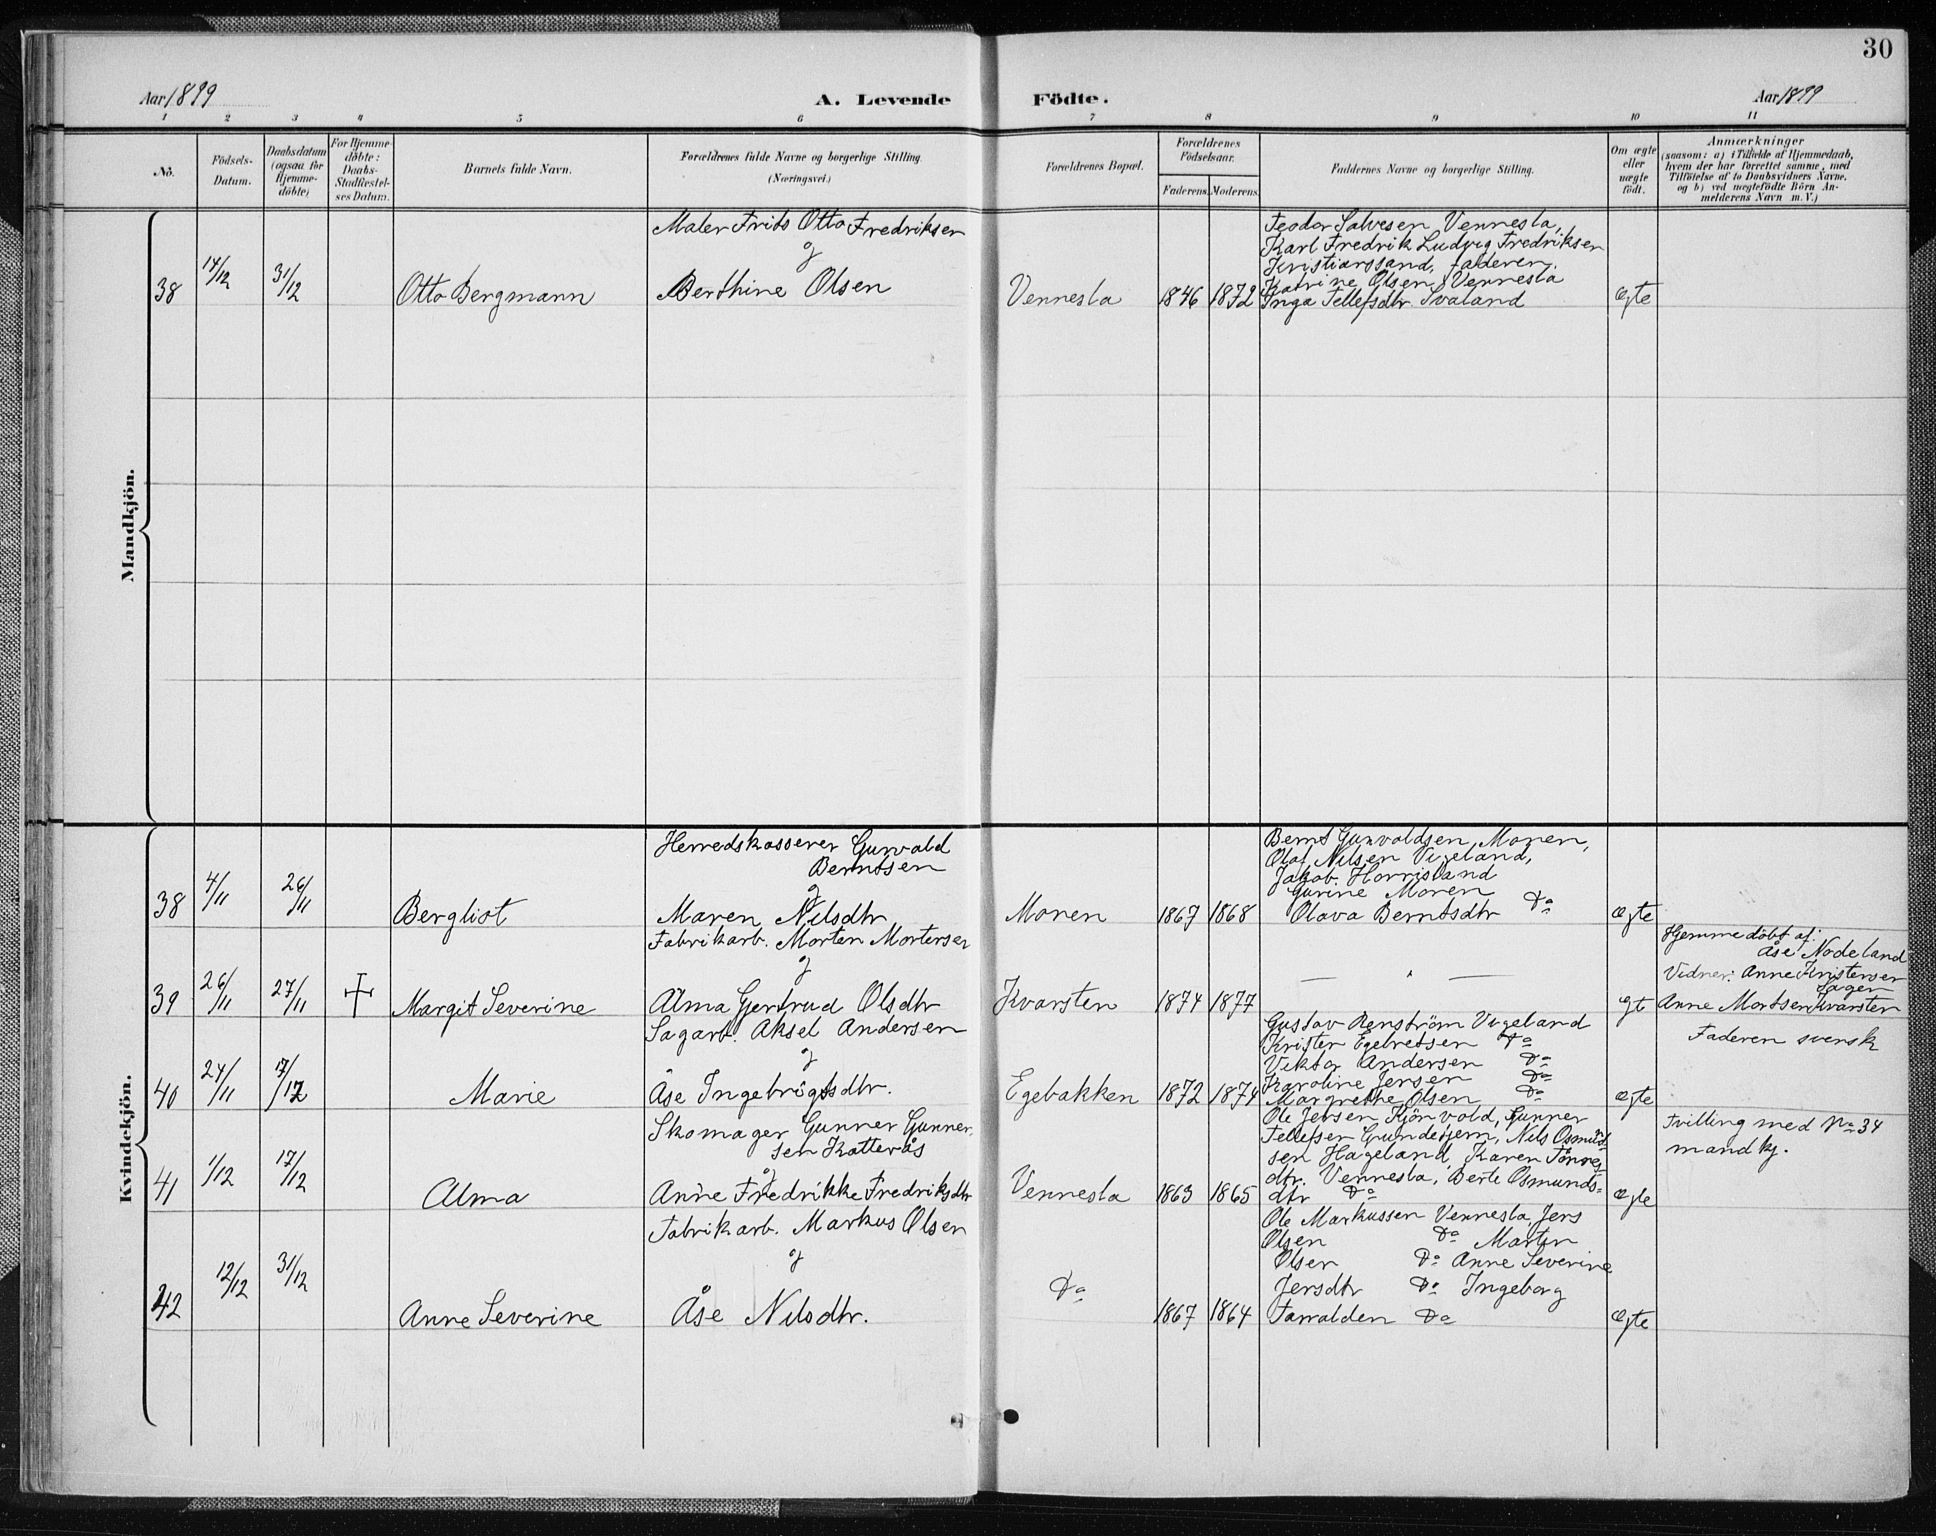 30
Aar 1899
A. Levende Födte.
Aar 1899
1 2 3 4 5 6 7 8 9 10 11
No.
Födsels-
Datum.
Daabsdatum
(ogsaa for
Hjemme-
döbte)
For Hjemme-
döbte:
Daabs-
Stadfæstel-
ses Datum.
Barnets fulde Navn.
Forældrenes fulde Navne og borgerlige Stilling.
(Næringsvei.)
Forældrenes Bopæl.
Forældrenes
Födselsaar.
Faderens. Moderens.
Faddernes Navne og borgerlige Stilling.
Om ægte
eller
uægte
födt.
Anmærkninger
(saasom: a) i Tilfælde af Hjemmedaab,
hvem der har forrettet samme, med
Tilföielse af to Daabsvidners Navne.
og b) ved uægtefödte Börn An-
melderens Navn m. V.)
Mandkjön.
38
14/12
31/12
Otto Bergmann
Maler Frits Otto Fredriksen
og
Berthine Olsen
Vennesla
1846 1872
Teodor Salvesen Vennesla,
Karl Fredrik Ludvig Fredriksen
Kristianssand, faderen.
Katrine Olsen, Vennesla
Inga Tellefsdtr. Svaland
Ægte
Kvindekjön.
38
4/11
26/11
Bergliot
Herredskasserer Gunvald
Berntsen
og
Maren Nilsdtr
Moren
1867 1868
Bernt Gunvaldsen, Moren,
Olaf Nilsen Vigeland,
Jakob Horrisland
Gurine Moren
Olava Berntsdtr Do
Ægte
39
26/11
27/11
Margit Severine
Fabrikarb. Morten Mortensen
og
Alma Gjertrud Olsdtr
Kvarsten
1874 1877
— " —
Ægt
Hjemmedöbt af:
Åse Nodeland
Vidner: Anne Kristensen
Anne Mortsen Kvarsten
40
24/11
17/12
Marie
Sagarb. Aksel Andersen
og
Åse Ingebrigtsdtr.
Egebakken
1872 1874
Gustav Renström Vigeland
Krister Egebretsen Do
Viktor Andersen Do
Karoline Jensen Do
Margrethe Olsen Do
Ægte
Faderen svensk
41
1/12
17/12
Alma
Skomager Gunner Gunner-
sen Katterås
og
Anne Fredrikke Fredriksdtr
Vennesla
1863 1865
Ole Jensen Kjönvold, Gunner
Tellefsen Grundetjern, Nils Osmund-
sen Hageland, Karen Tönnes-
dtr. Vennesla, Berte Osmunds-
dtr Do
Ægte
Tvilling med No 34
mandkj.
42
12/12
31/12
Anne Severine
Fabrikarb. Markus Olsen
og
Åse Nilsdtr.
Do
1867 1864
Ole Markussen Vennesla, Jens
Olsen Do Martin
Olsen Do Anne Severine
Jensdtr Do Ingeborg
Do
Ægte